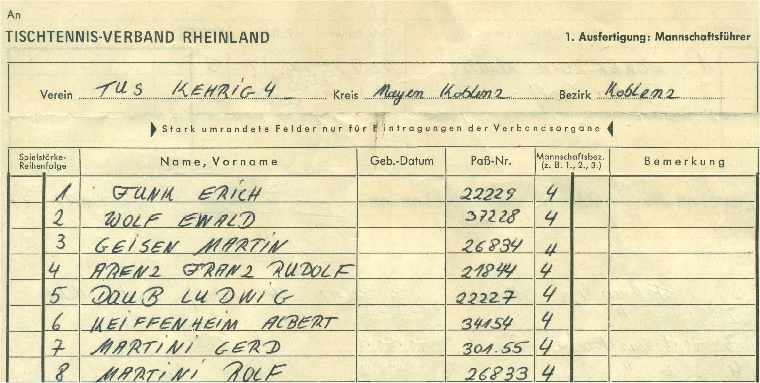 An
TISCHTENNIS-VERBAND RHEINLAND
1. Ausfertigung: Mannschaftsführer
Verein TUS KEHRIG 4 Kreis Mayen Koblenz Bezirk Koblenz
Stark umrandete Felder nur für Eintragungen der Verbandsorgane
Spielstärke-Reihenfolge Name, Vorname Geb.-Datum Paß-Nr. Mannschaftsbez. (z. B. 1., 2., 3.) Bemerkung
1 FUNK ERICH 22229 4
2 WOLF EWALD 37228 4
3 GEISEN MARTIN 26834 4
4 ARENZ FRANZ RUDOLF 21844 4
5 DAUB LUDWIG 22227 4
6 KEIFFENHEIM ALBERT 34154 4
7 MARTINI GERD 301.55 4
8 MARTINI ROLF 26833 4